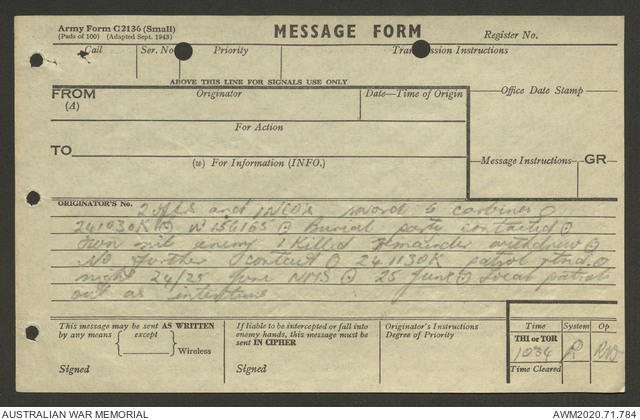 Army Form C2136 (Small)
(Pads of 100) (Adapted Sept. 1943)
MESSAGE FORM
Register No.
Call
Ser. No.
Priority
Transmission Instructions
ABOVE THIS LINE FOR SIGNALS USE ONLY
FROM
(A)
Originator
Date—Time of Origin
Office Date Stamp
For Action
TO
(w) For Information (INFO.)
Message Instructions
GR
ORIGINATOR'S No.
2 and sword 6 carbines
241030K W 156165 Burial party contacted
Own nil enemy 1 killed remainder withdrew
No further contact 241130K patrol rtnd
night 24/25 June 25 June local patrols
out as
This message may be sent AS WRITTEN
by any means
except
Wireless
Signed
If liable to be intercepted or fall into
enemy hands, this message must be
sent IN CIPHER
Signed
Originator's Instructions
Degree of Priority
Time
System
Op
THI or TOR
1034
R
Time Cleared
AUSTRALIAN WAR MEMORIAL
AWM2020.71.784